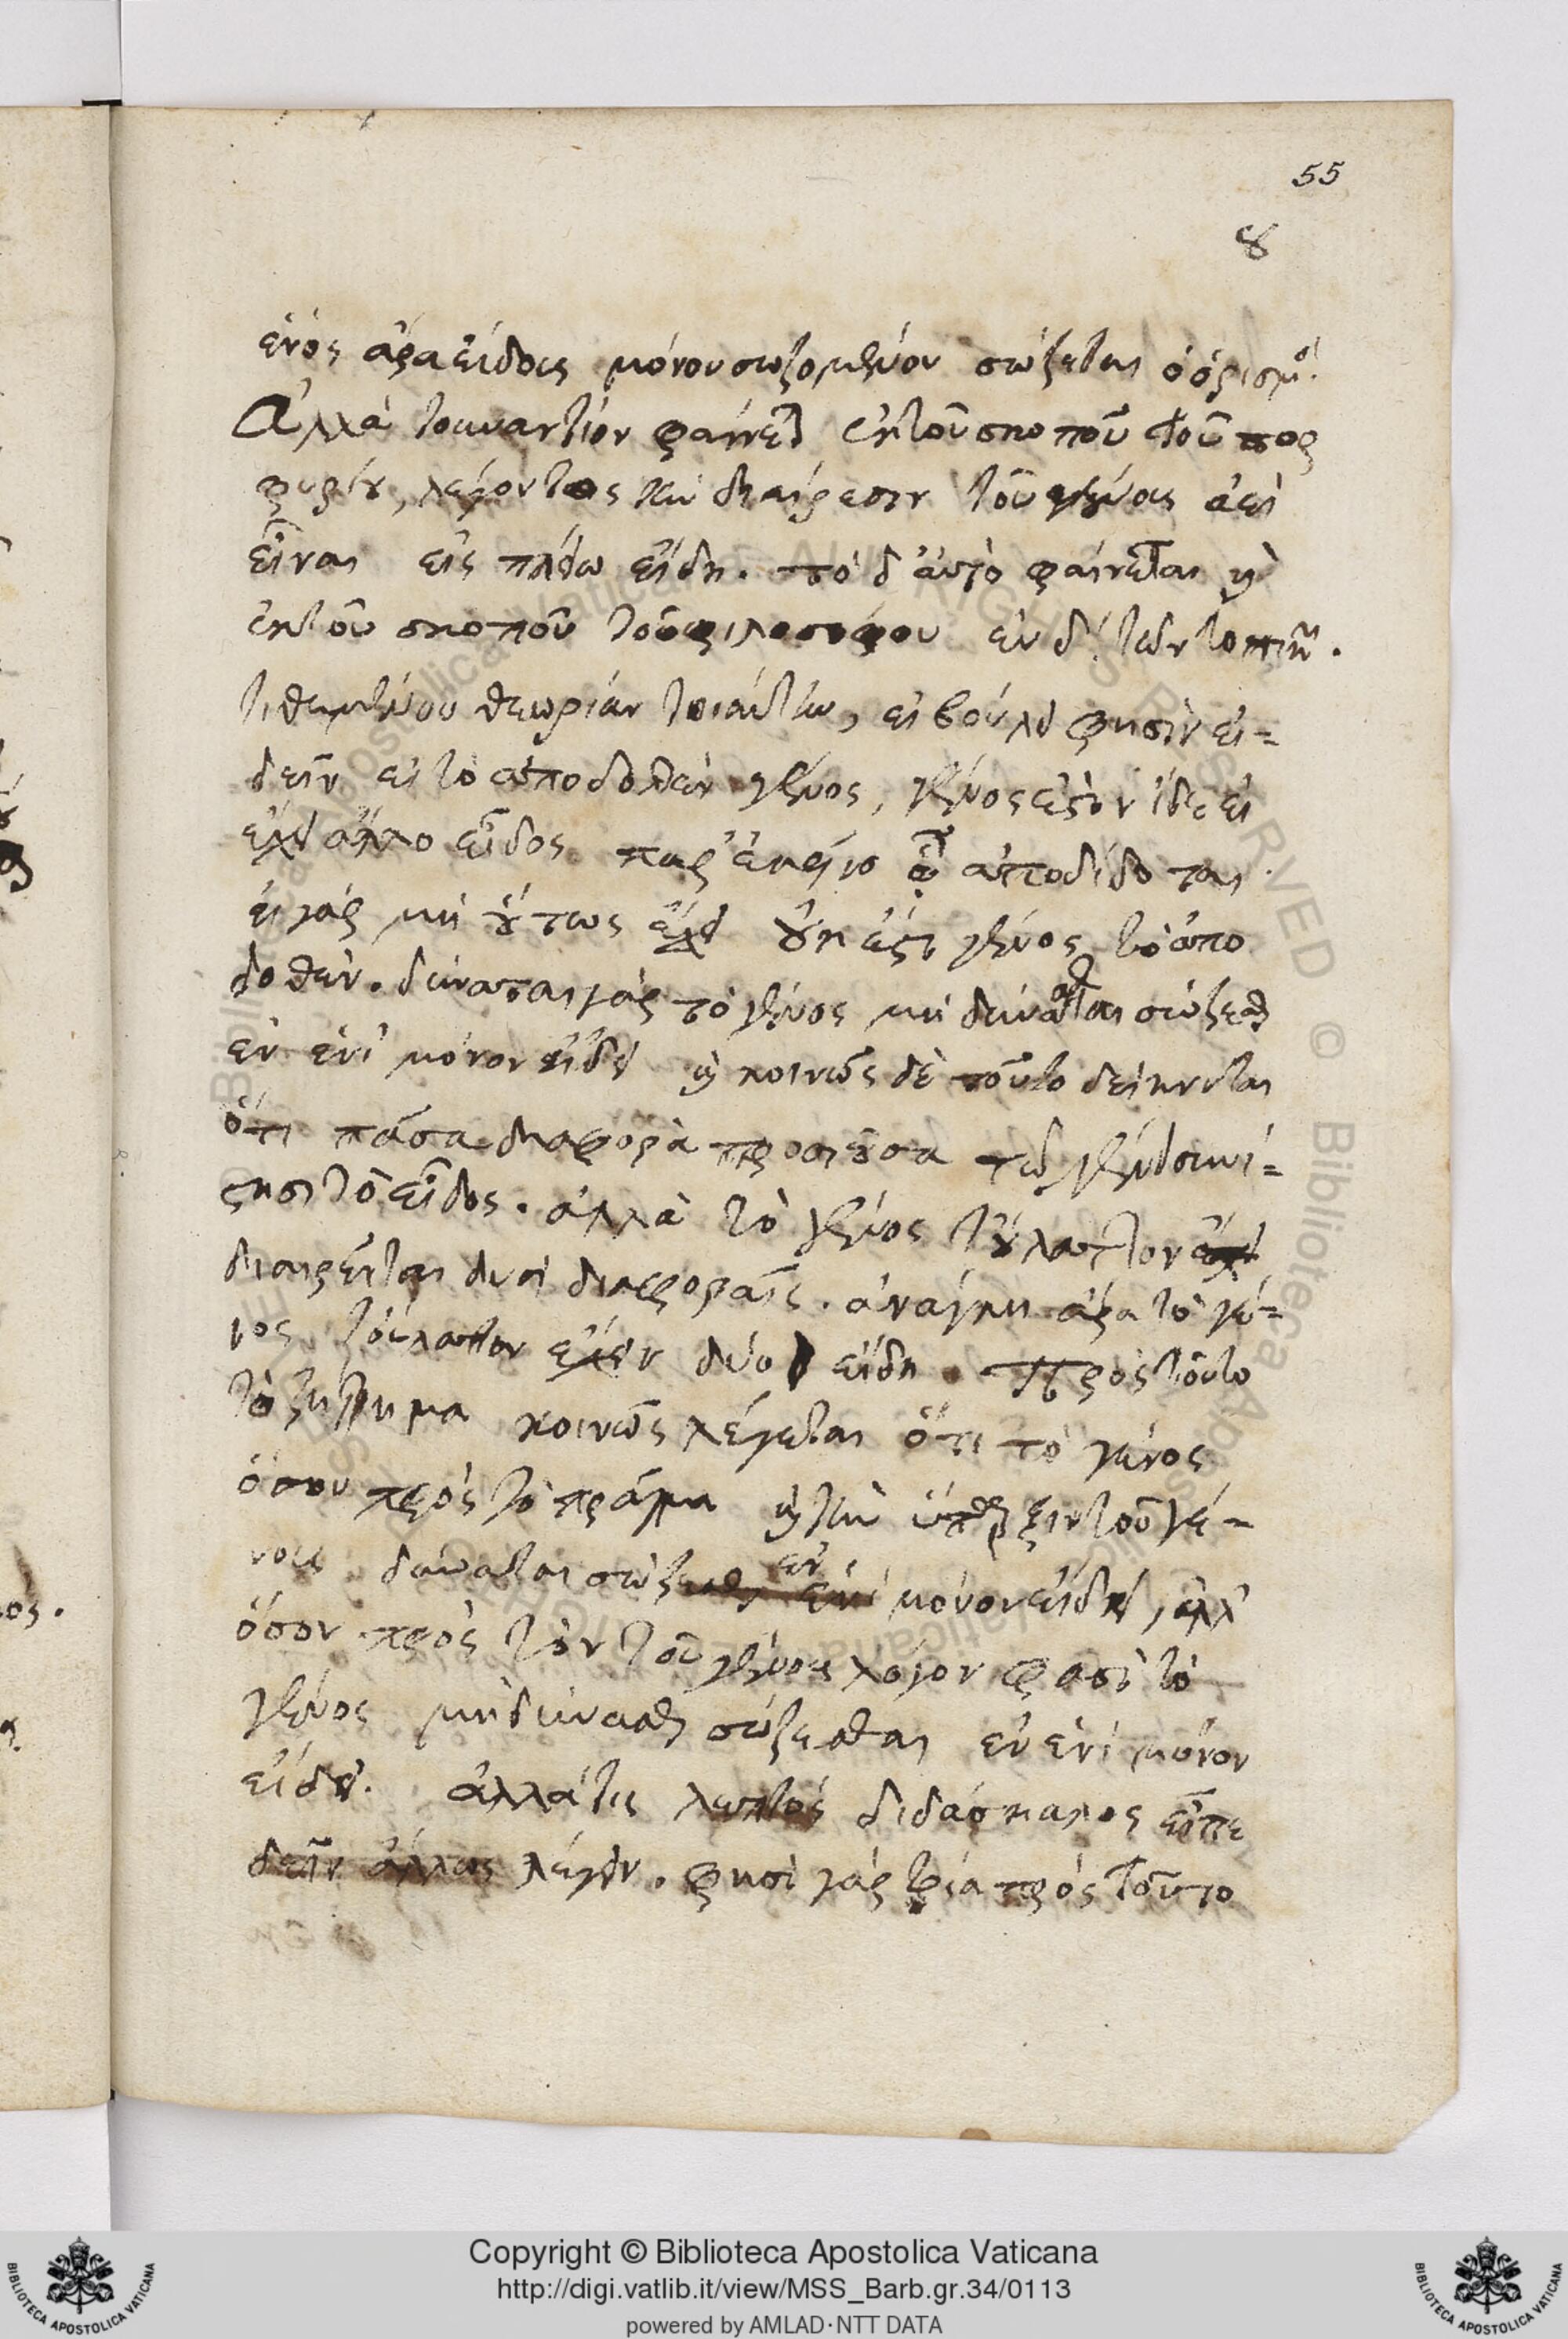 55
8
ἑνὸς ἄρα εἴδους μόνου σωζομένου σώζεται ὁ ὁρισμὸ.
Ἀλλὰ τοὐναντίον φαίνεται ἐκ τοῦ σκοποῦ τοῦ πορ
φυρίου, λέγοντος τὴν διαίρεσιν τοῦ γένους ἀεὶ
εἶναι εἰς πλείω εἴδη. τὸ δ' αὐτὸ φαίνεται καὶ
ἐκ τοῦ σκοποῦ τοῦ φιλοσόφου ἐν δ' τῶν τοπικῶν.
τιθεμένου θεωρίαν τοιαύτην, εἰ βούλει φησὶν εἰ=
δεῖν εἰ τὸ ἀποδοθὲν γένος, γένος ἐστὶν ἴδε εἰ
ἔχει ἄλλο εἶδος παρ' ἐκεῖνο ᾧ ἀποδίδοται.
εἰ γὰρ μὴ οὕτως ἔχει οὐκ ἔστι γένος τὸ ἀπο
δοθέν. δύναται γὰρ τὸ γένος μὴ δύνασθαι σώζεσθαι
ἐν ἑνὶ μόνον εἴδει καὶ κοινῶς δὲ τοῦτο δείκνυται
ὅτι πᾶσα διαφορὰ προσιοῦσα τῷ γένει συνί=
στησι τὸ εἶδος. ἀλλὰ τὸ γένος τοὔλαττον ἔχει
διαιρεῖται δυσὶ διαφοραῖς. ἀνάγκη ἄρα τὸ γέ=
νος τοὔλαττον ἔχειν δύο εἴδη. πρὸς τοῦτο
τὸ ζήτημα κοινῶς λέγεται ὅτι τὸ γένος
ὅσον πρὸς τὸ πρᾶγμα καὶ τὴν ὕπαρξιν τοῦ γέ=
νους δύναται σώζεσθαι ἐν ἑνὶ μόνον εἴδει, ἀλλ'
ὅσον πρὸς τὸν τοῦ γένους λόγον φασὶ τὸ
γένος μὴ δύνασθαι σώζεσθαι ἐν ἑνὶ μόνον
εἴδει. ἀλλὰ τις λεπτὸς διδάσκαλος εἶπε
δεῖν ἄλλως λέγειν. φησὶ γὰρ τρία πρὸς τοῦτο
Copyright © Biblioteca Apostolica Vaticana
http://digi.vatlib.it/view/MSS_Barb.gr.34/0113
powered by AMLAD·NTT DATA